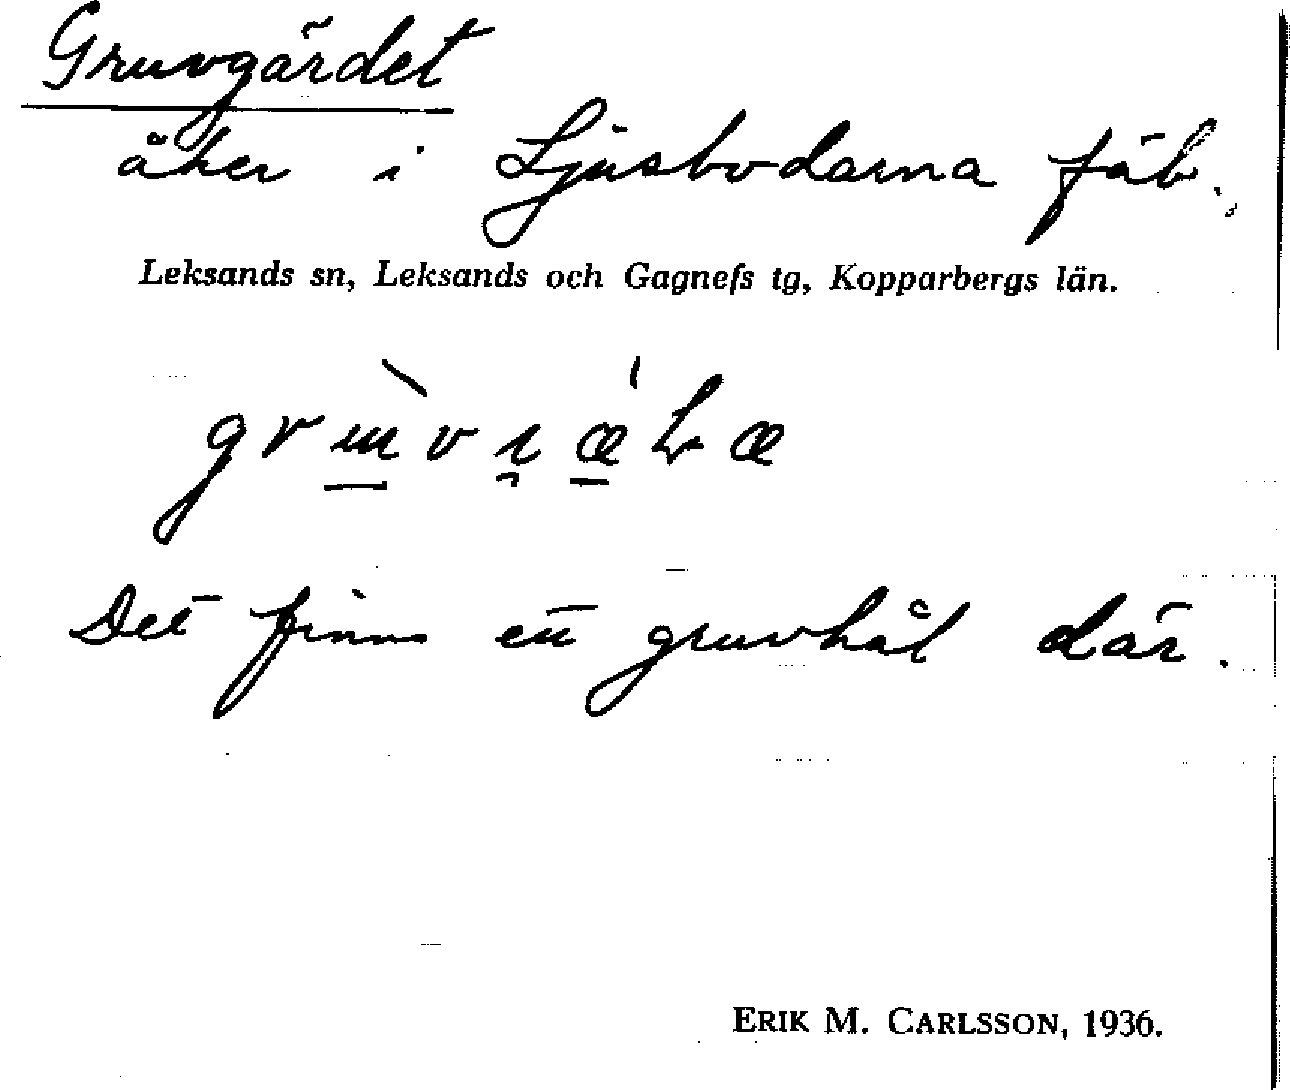 Gruvgärdet
åker i Ljusbodarna fäb.,
Leksands sn, Leksands och Gagnefs tg, Kopparbergs län.
Det finns ett gruvhål där.
ERIK M. CARLSSON, 1936.